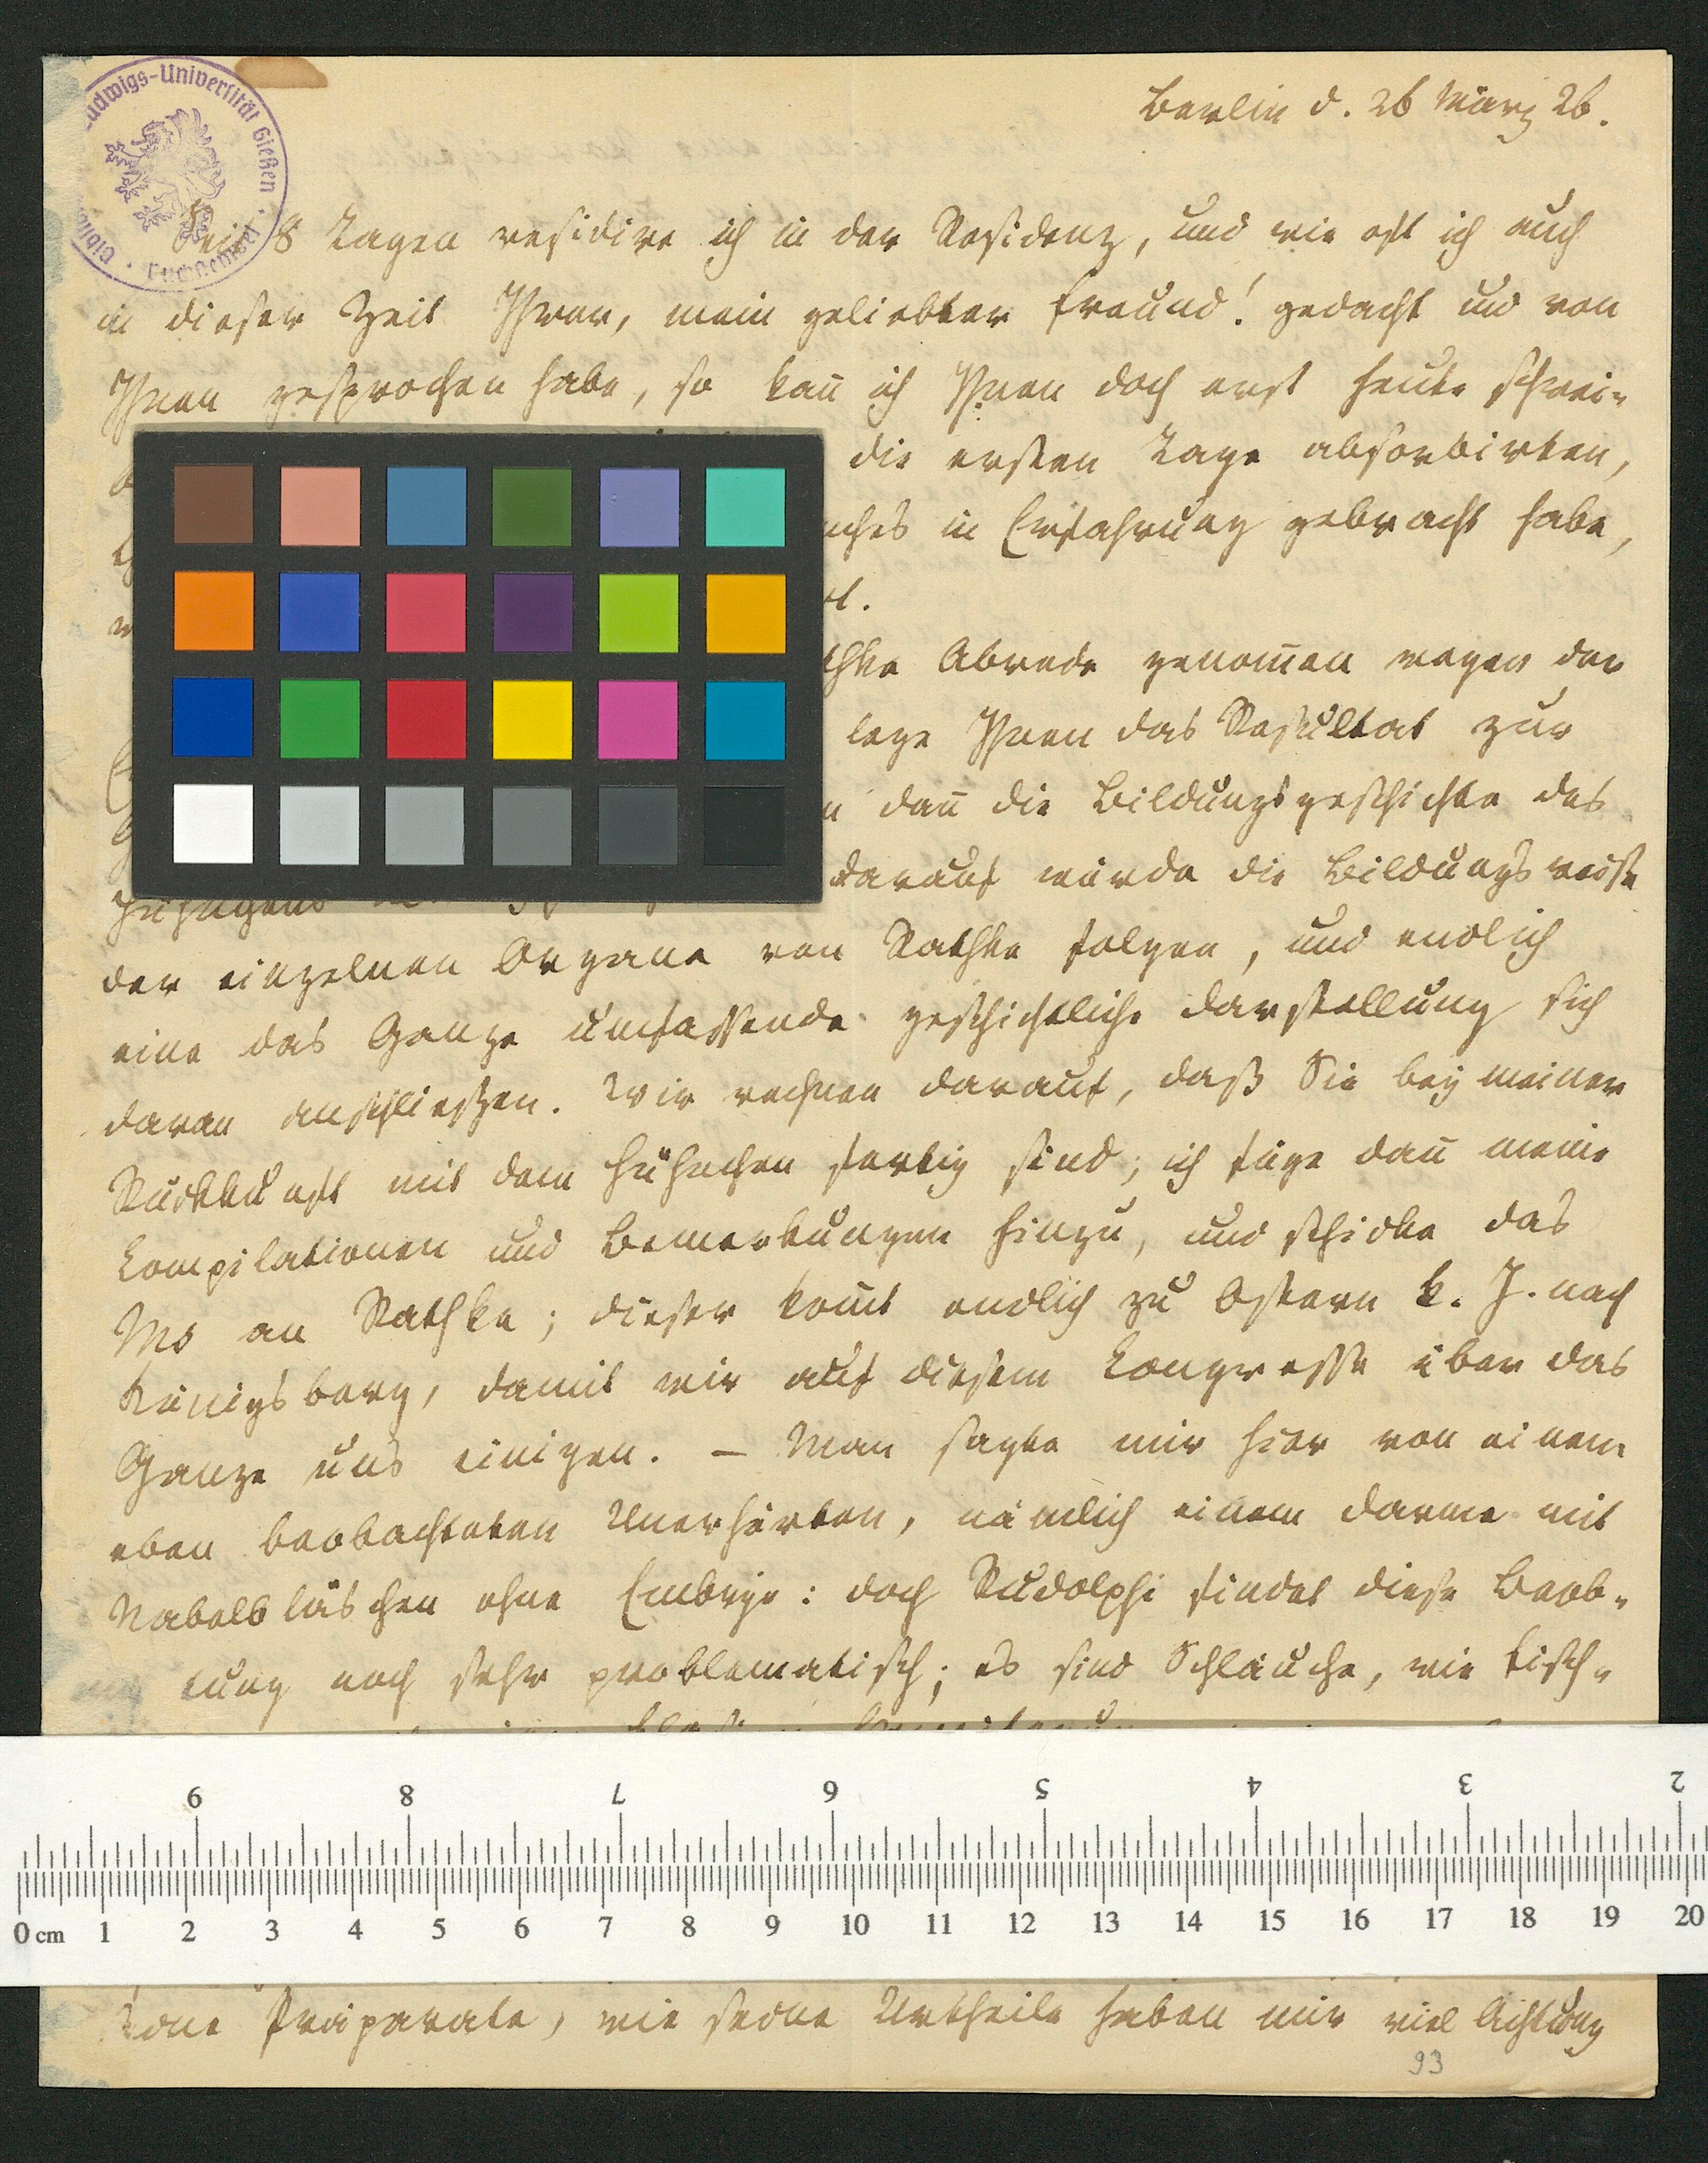 Ludwigs-Universität Gießen
Berlin d. 26 März 26.
Seit 8 Tagen residire ich in der Residenz, und wie oft ich auch
in dieser Zeit Ihrer, mein geliebter Freund! gedacht und von
Ihnen gesprochen habe, so kan̄ ich Ihnen doch erst heute schrei-
die ersten Tage absorbirten,
in Erfahrung gebracht habe,
Abrede genom̄en wegen der
lege Ihnen das Resultat zur
dan̄ die Bildungsgeschichte des
darauf würde die Bildungsweise
der einzelnen Organe von Rathke folgen, und endlich
eine das Ganze umfassende geschichtliche Darstellung sich
daran anschließen. Wir rechnen darauf, daß Sie bey meiner
Rückkunft mit dem Hühnchen fertig sind; ich füge dan̄ meine
Compilationen und Bemerkungen hinzu, und schicke das
Ms an Rathke; dieser kom̄t endlich zu Ostern k. J. nach
Königsberg, damit wir auf diesem Congresse über das
Ganze uns einigen. – Man sagte mir hier von einem
eben beobachteten Unerhörten, nämlich einem Darme mit
Nabelbläschen ohne Embryo: doch Rudolphi findet diese Beob-
tung noch sehr problematisch; es sind Schläuche, wie Fisch-
9 8 7 6 5 4 3 2
0 cm 1 2 3 4 5 6 7 8 9 10 11 12 13 14 15 16 17 18 19 20
Präparate, wie seine Urtheile haben mir viel Achtung
93